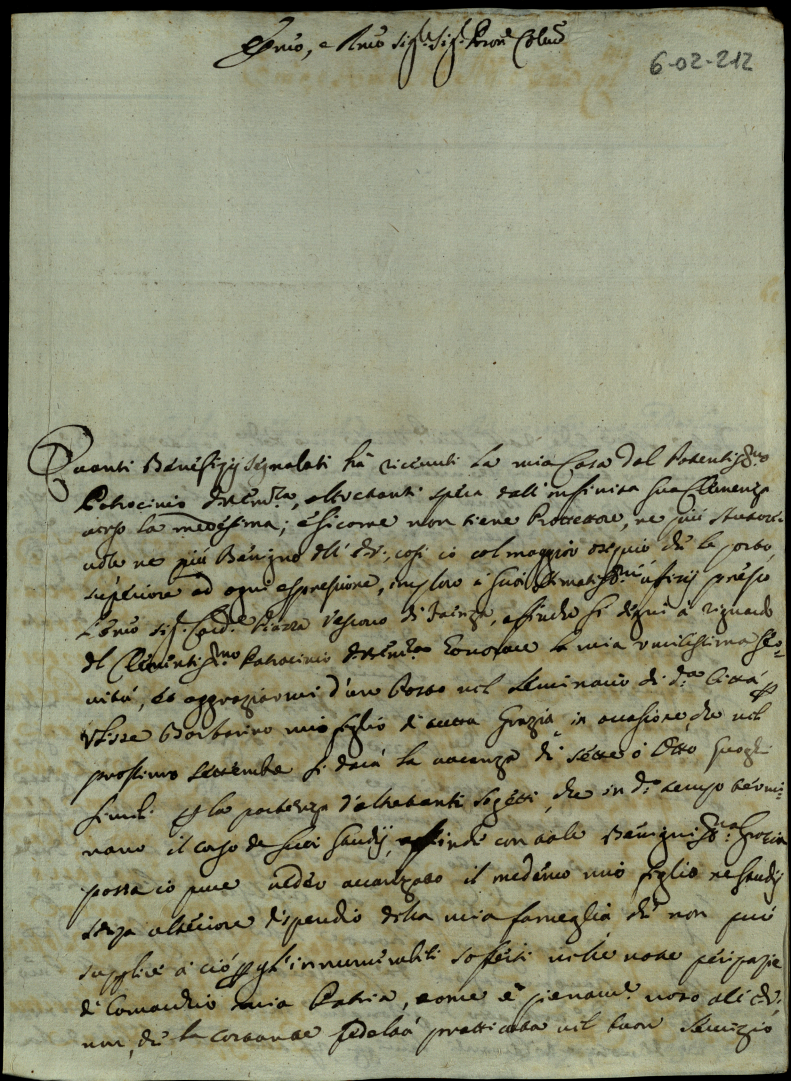 Emo, e Rmo Sigr. Sigr. Pron Colmo
6-02-212
Quanti Benefizj segnalati hà ricevuti la mia Casa dal Potentissmo
Patrocinio dell'Emza, altretanti spera dall'infinita sua Clemenza
verso la medesima; e sicome non tiene Protettore, ne più
ne più Benigno dell' così io col maggior osequio che le porto,
superiore ad ogni espressione, imploro i suoi stimatissmi ufizij presso
l'Emo Sigr. Card.le Piazza Vescovo di Faenza, affinche si degni à riguardo
del Clementissmo Patrocinio dell'Emza honorare la mia umilissima
vitù, ed aggraziarmi d'un Posto nel Seminario di da. Città
Ulisse Barbarino mio figlio di tutta Grazia in occasione che nel
prossimo Settembre si darà la vacanza di sette ò Otto Luoghi
simili p la partenza d'altretanti Sogetti, che in do. tempo termi-
nano il corso de suoi studij, affinche con tale Benignissma. Grazia
possa io pure veder avanzato il medemo mio figlio ne studij
senza ulteriore dispendio della mia fameglia che non può
supplire à ciò p gl'innumerabili sofferti nelle note peripezie
di Comacchio mia Patria, come è pienamte. noto all'
che la costante fedeltà pratticata nel buon servizio